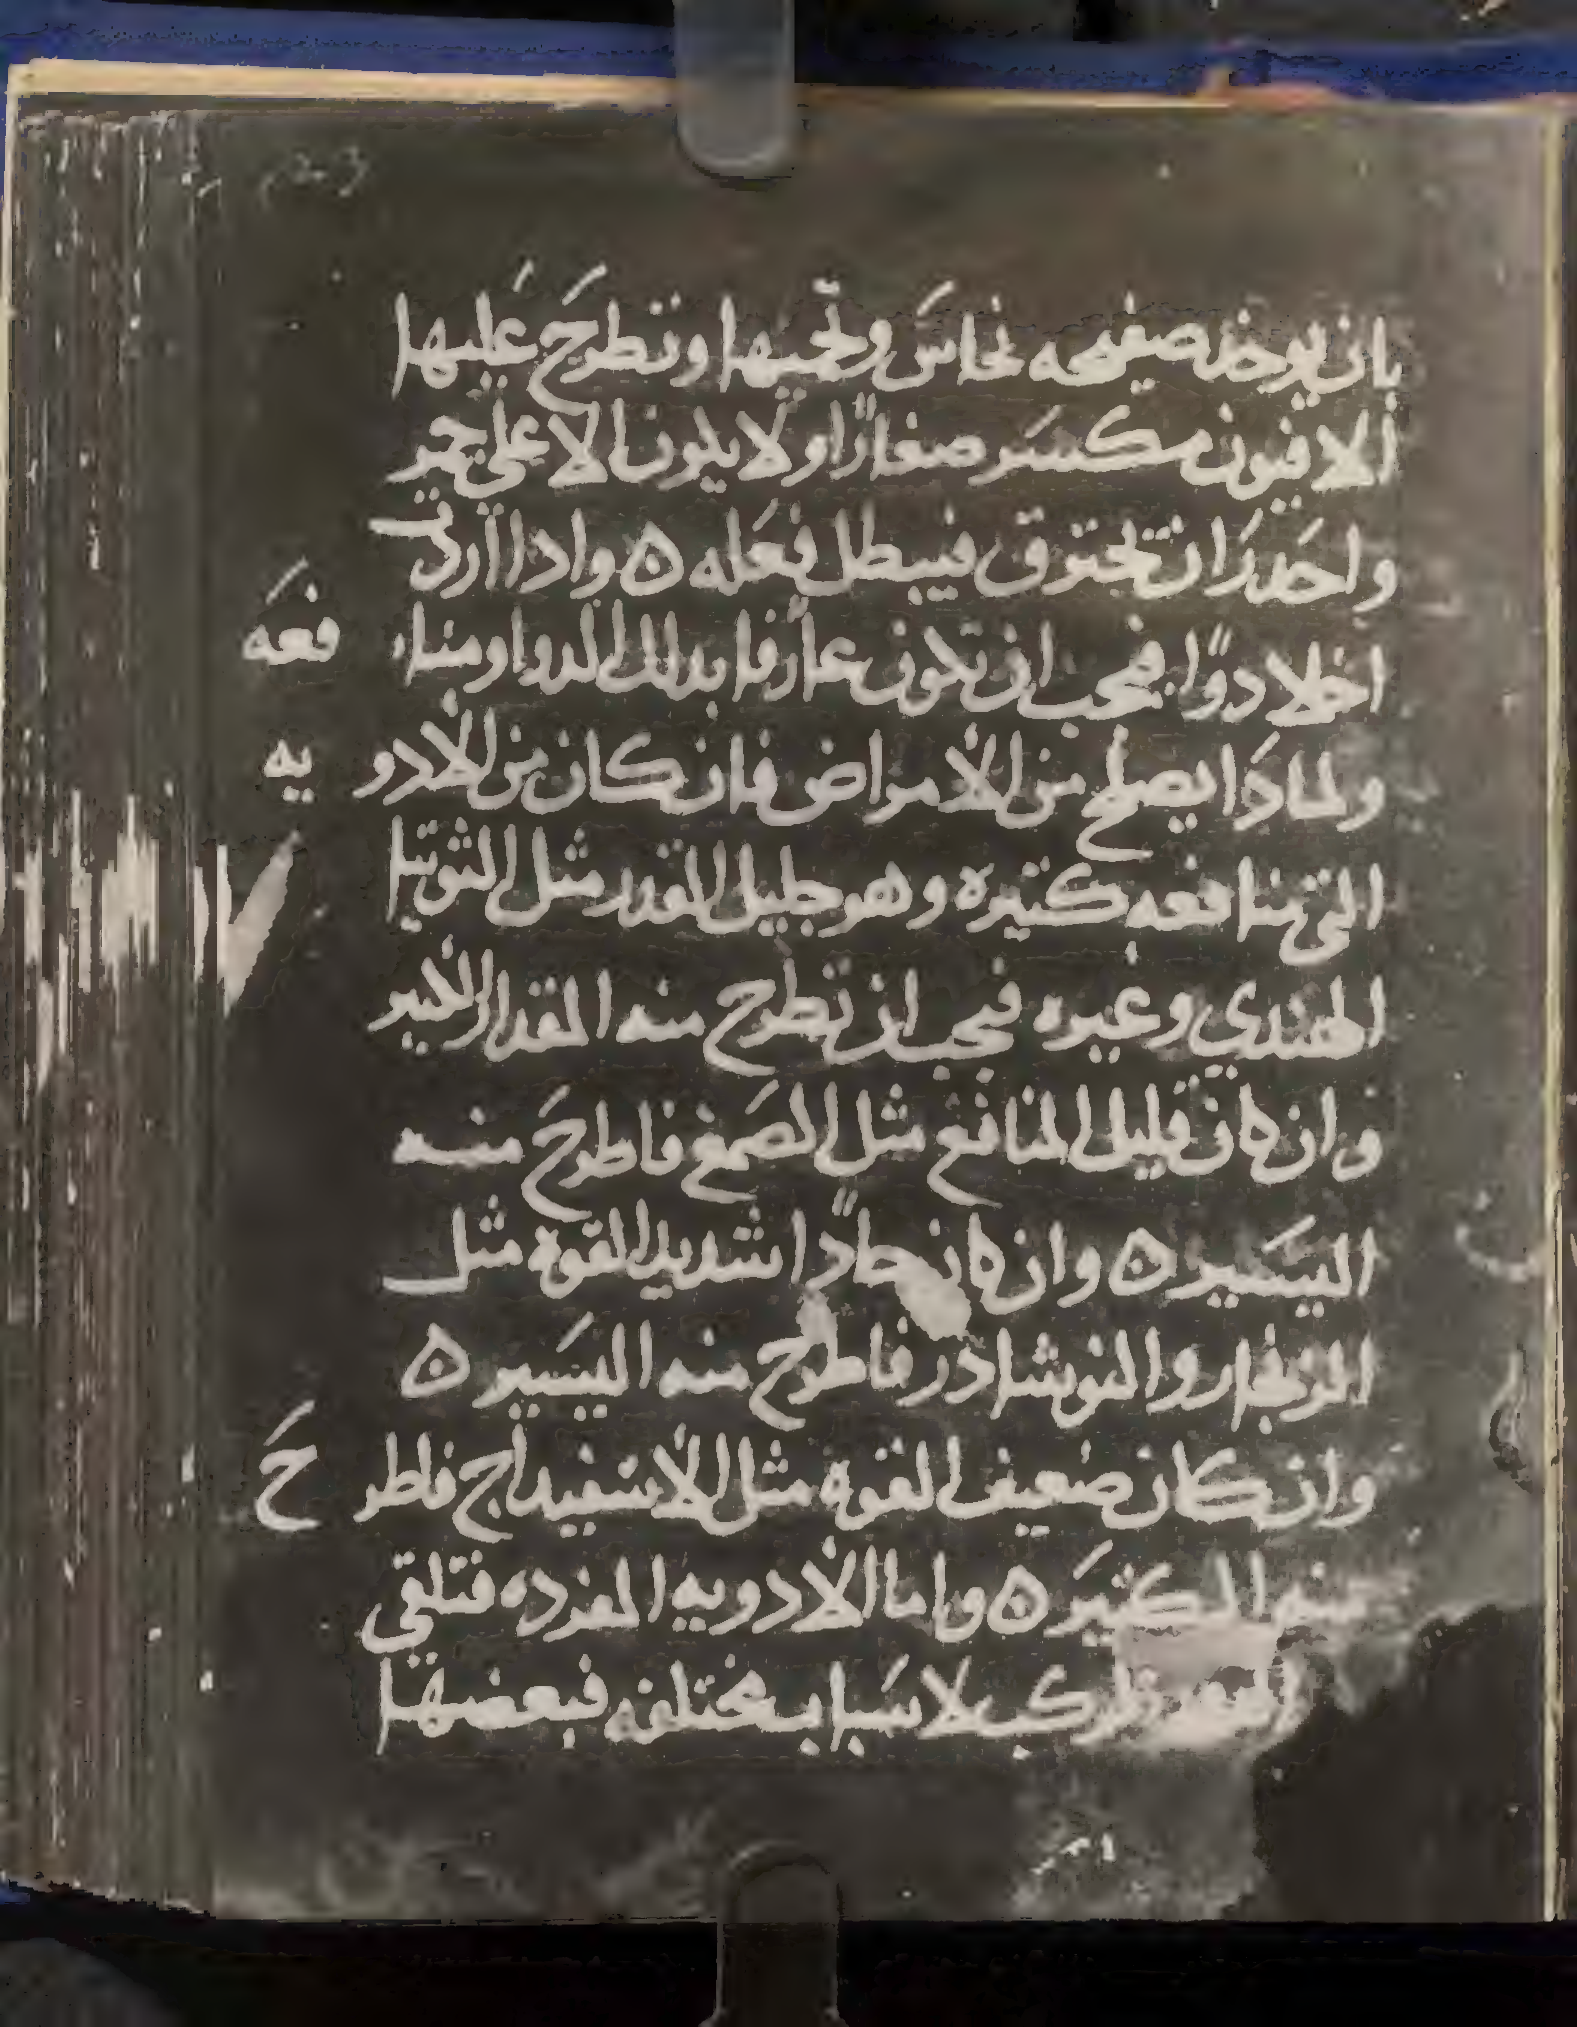 بان يوخذ صفيحه نحاسَ وتحميها وتطرحَ عَليها
الافيون مكسَر صغارًا ولا يكون الا على جمر
واحَدرَ ان تحترق فيبطل فعَله ه واذا اردت
اخلاد دوًا فيجب ان تكون عارفا بدلك الدوا ومنا فعَه
ولمادَا يصلح من الامراض فان كان من الادو يه
التي منافعه كتيره وهو جليل القدر مثل التوتيا
الهندي وغيره فيجب ان تطرح منه المقدار الكبير
وان كان قليل المنافع مثل الصَمغ فاطرحَ منه
اليسَير ه وان كان حادًا شديد القوه مثل
الزنجار والنوشادر فاطرح منه اليسَير ه
وان كان ضعيف القوه مثل الاسفيداج فاطر حَ
منه الكثيَر ه واما الادويه المفرده فتلقي
تركب لاسَباب مختلفه فبعضها